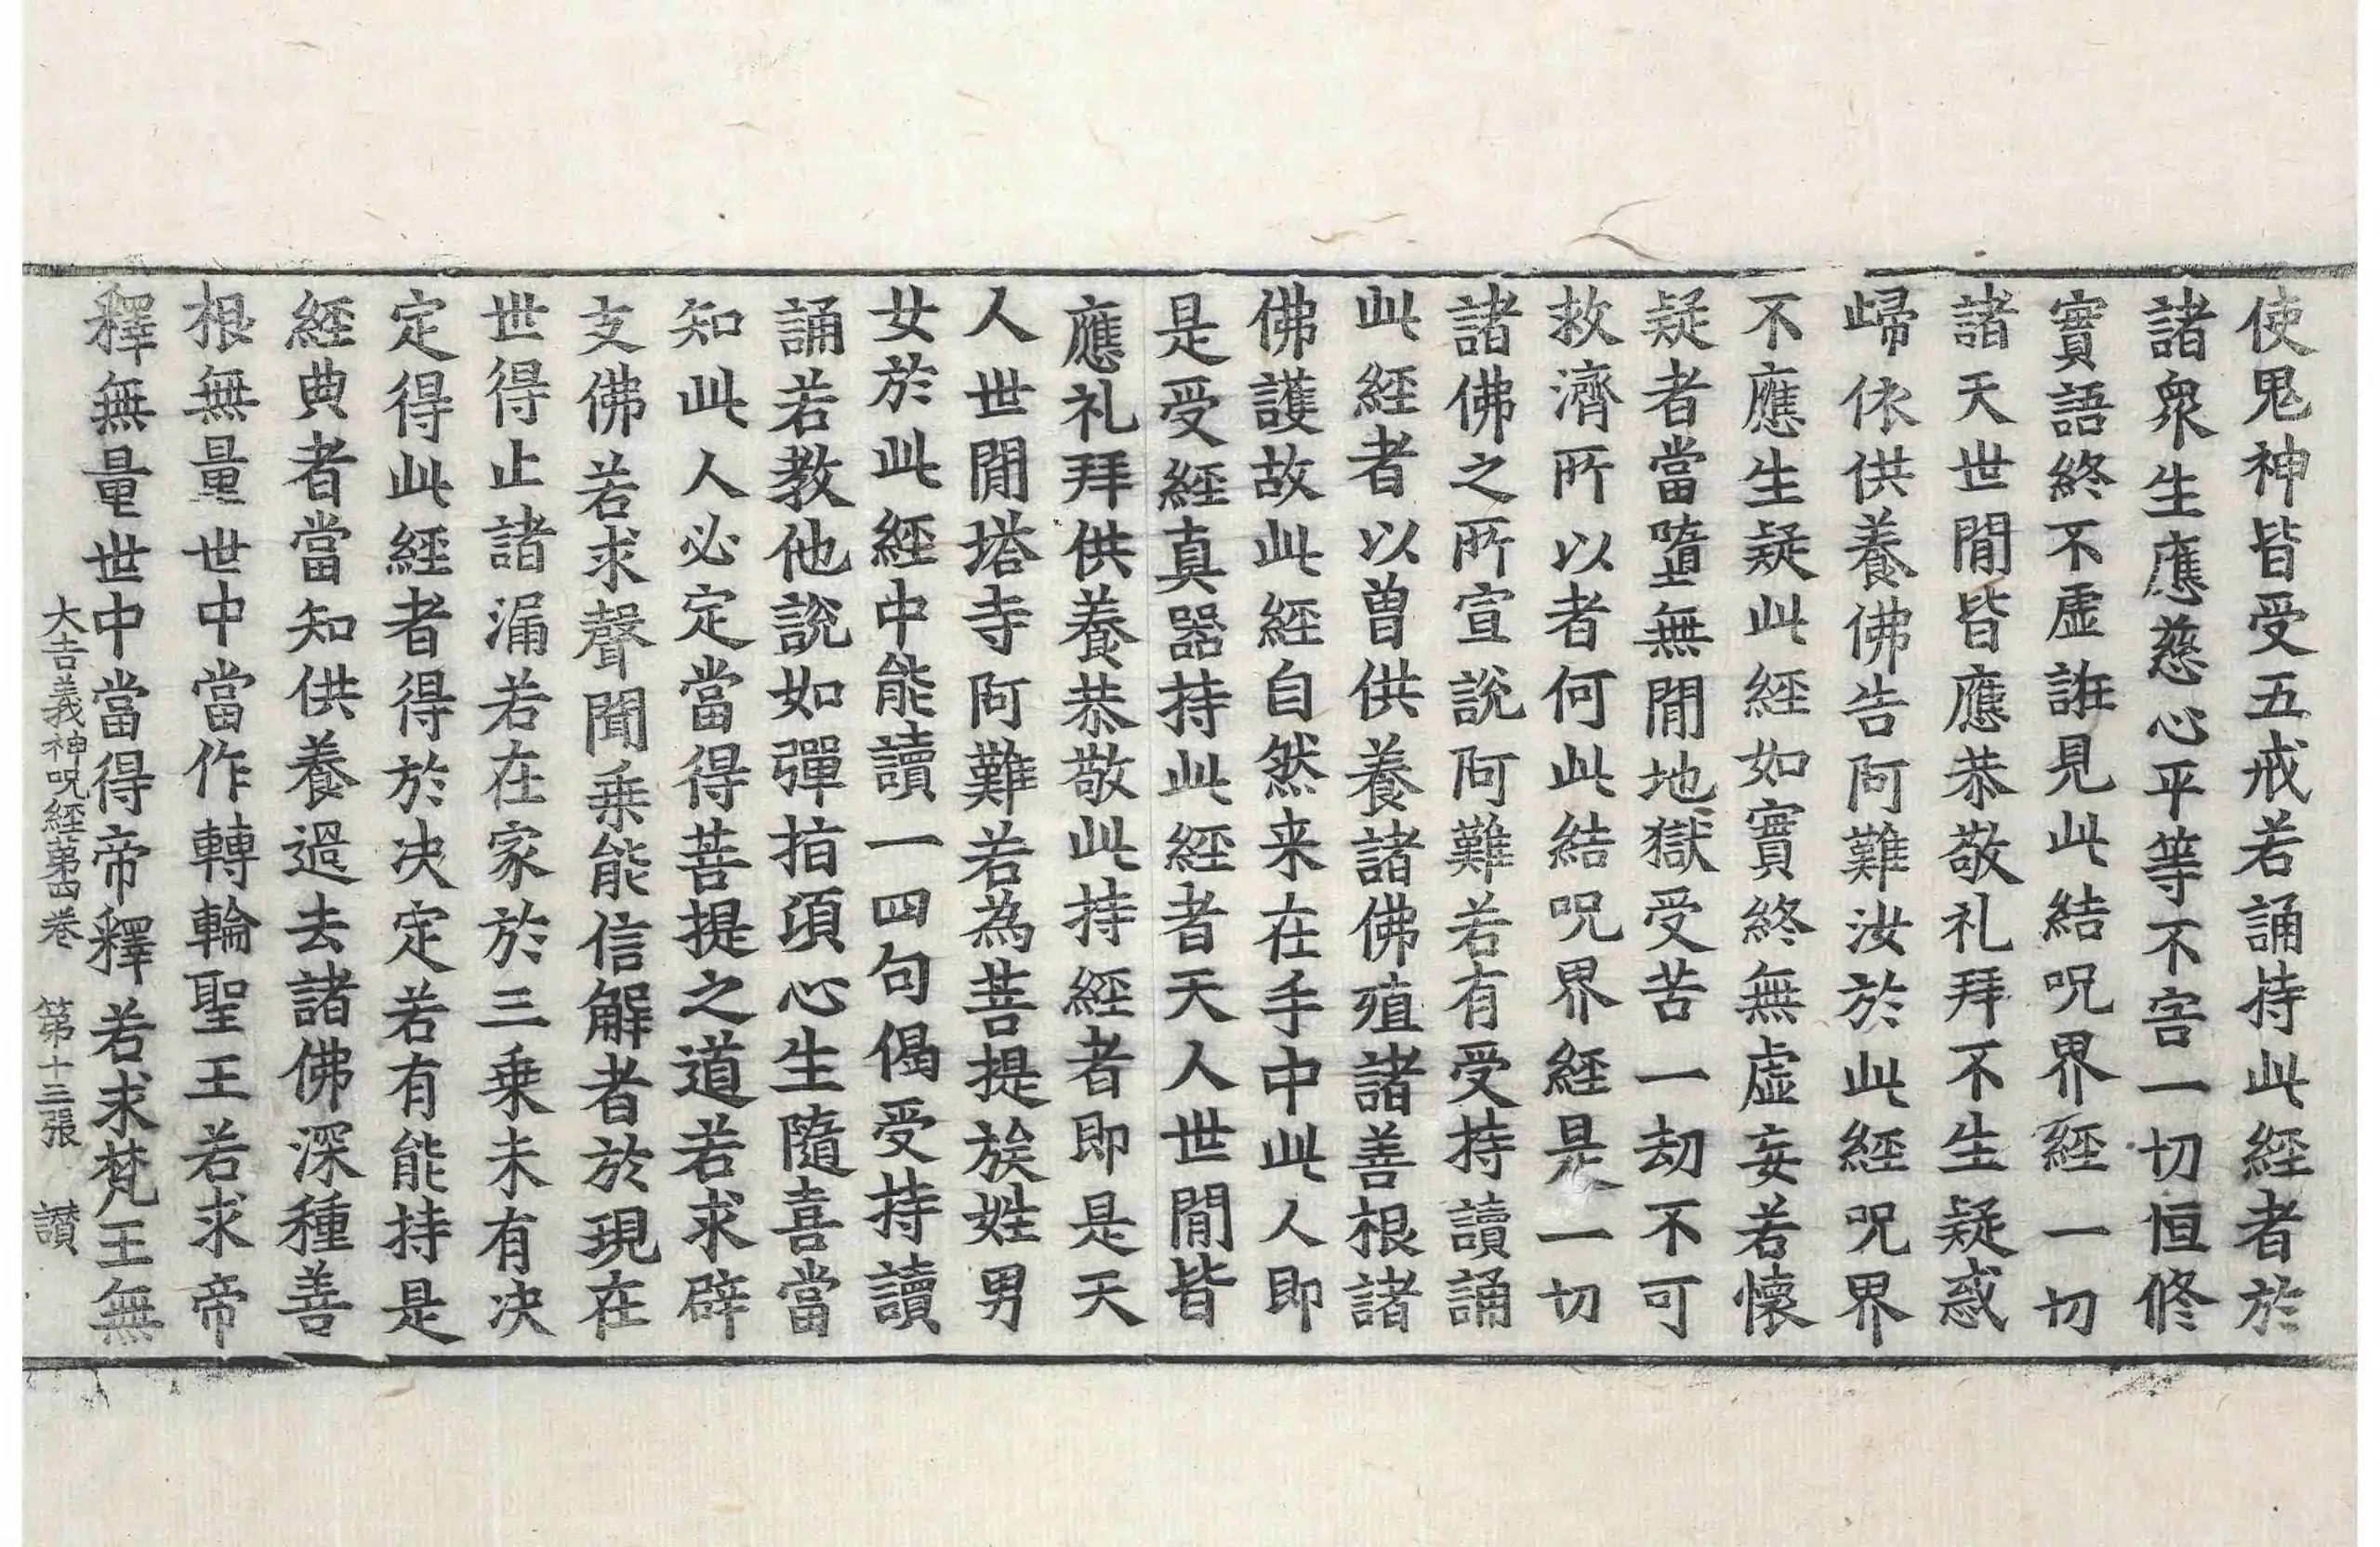 使鬼神皆受五戒若誦持此經者於
諸衆生應慈心平等不害一切恒修
實語終不虛誑見此結呪界經一切
諸天世閒皆應恭敬礼拜不生疑惑
歸依供養佛告阿難汝於此經呪界
不應生疑此經如實終無虛妄若懷
疑者當墮無閒地獄受苦一劫不可
救濟所以者何此結呪界經是一切
諸佛之所宣說阿難若有受持讀誦
此經者以曾供養諸佛殖諸善根諸
佛護故此經自然来在手中此人即
是受經真器持此經者天人世閒皆
應礼拜供養恭敬此持經者即是天
人世閒塔寺阿難若為菩提族姓男
女於此經中能讀一四句偈受持讀
誦若教他說如彈指頃心生隨喜當
知此人必定當得菩提之道若求辟
支佛若求聲聞乗能信解者於現在
世得止諸漏若在家於三乗未有决
定得此經者得於决定若有能持是
經典者當知供養過去諸佛深種善
根無量世中當作轉輪聖王若求帝
釋無量世中當得帝釋若求梵王無
大吉義神呪經第四卷 第十三張 讃